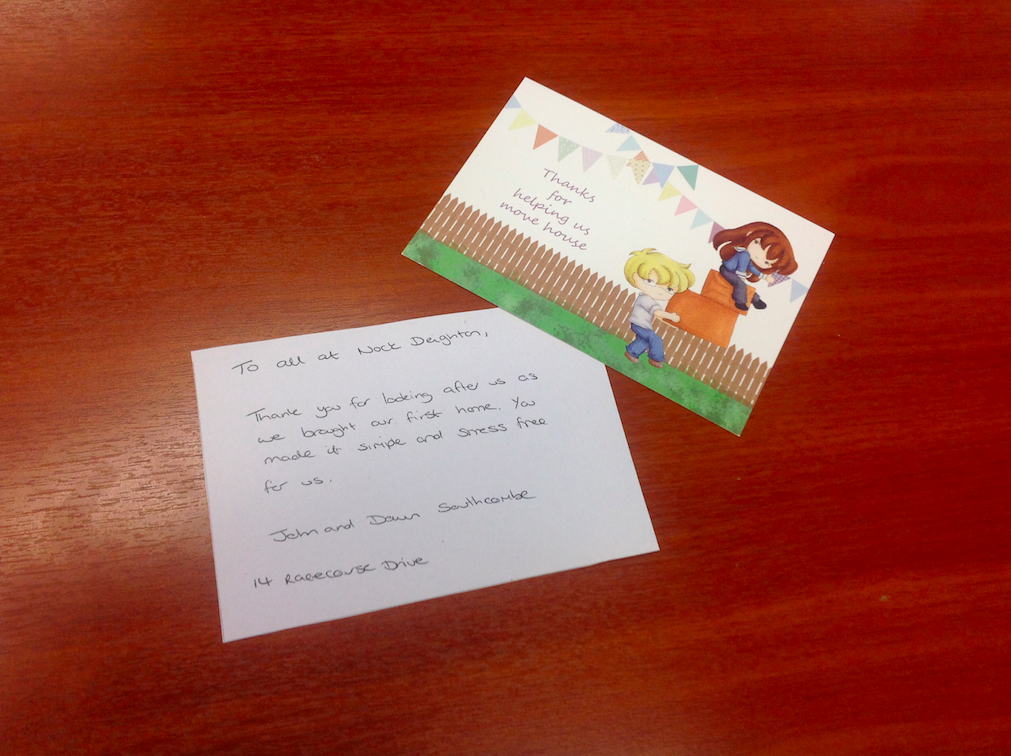 Thanks
for
helping us
move house
To all at Nock Deighton,
Thank you for looking after us as
we brought our first home. You
made it simple and stress free
for us.
John and Dawn Southcombe
14 Racecourse Drive